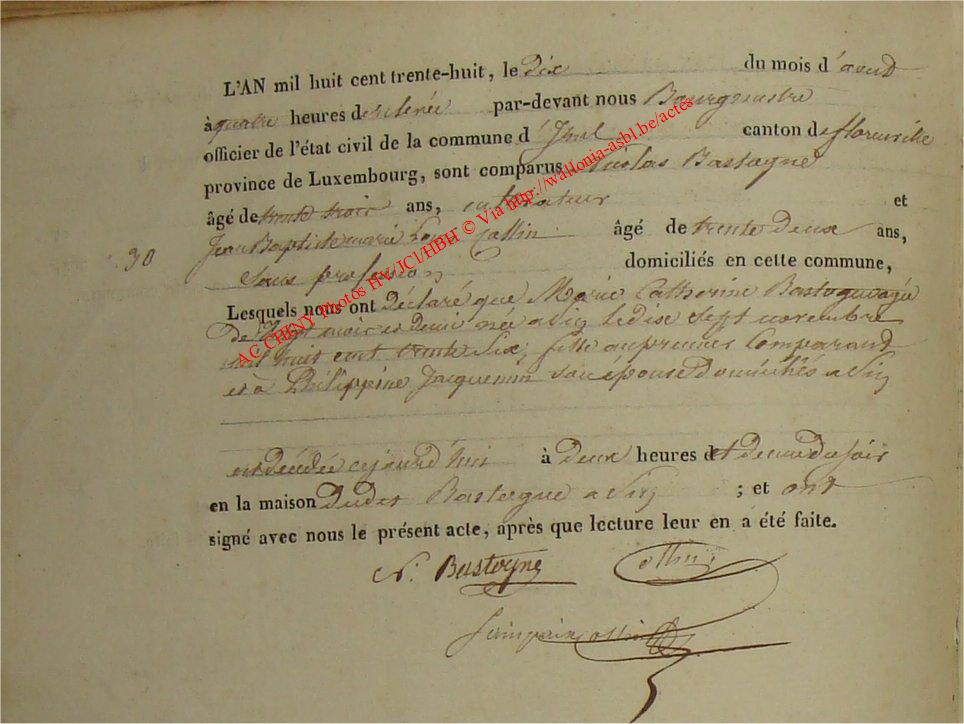 L'AN mil huit cent trente-huit, le dix du mois d'
à quatre heures de relevée par-devant nous Bourgmestre
officier de l'état civil de la commune d' canton de florenville
province de Luxembourg, sont comparus Nicolas Bastogne
âgé de trente trois ans, cultivateur et
Jean Baptiste marié Collin âgé de trente deux ans,
30
Sans profession domiciliés en cette commune,
Lesquels nous ont Déclaré que Marie Catherine Bastogne agée
De mois et Demi née a le dix sept novembre
mil huit cent trente Six, fille au premier Comparand
et à Philippine Jacquemin son épouse Domiciliés a
est décédée cejourd'hui à Deux heures et demie Du soir
en la maison Dudit Bastogne a ; et ont
signé avec nous le présent acte, après que lecture leur en a été faite.
N. Bastogne Collin
AC CHINY Photos HV/JCl/HBH © Via http://wallonia-asbl.be/actes